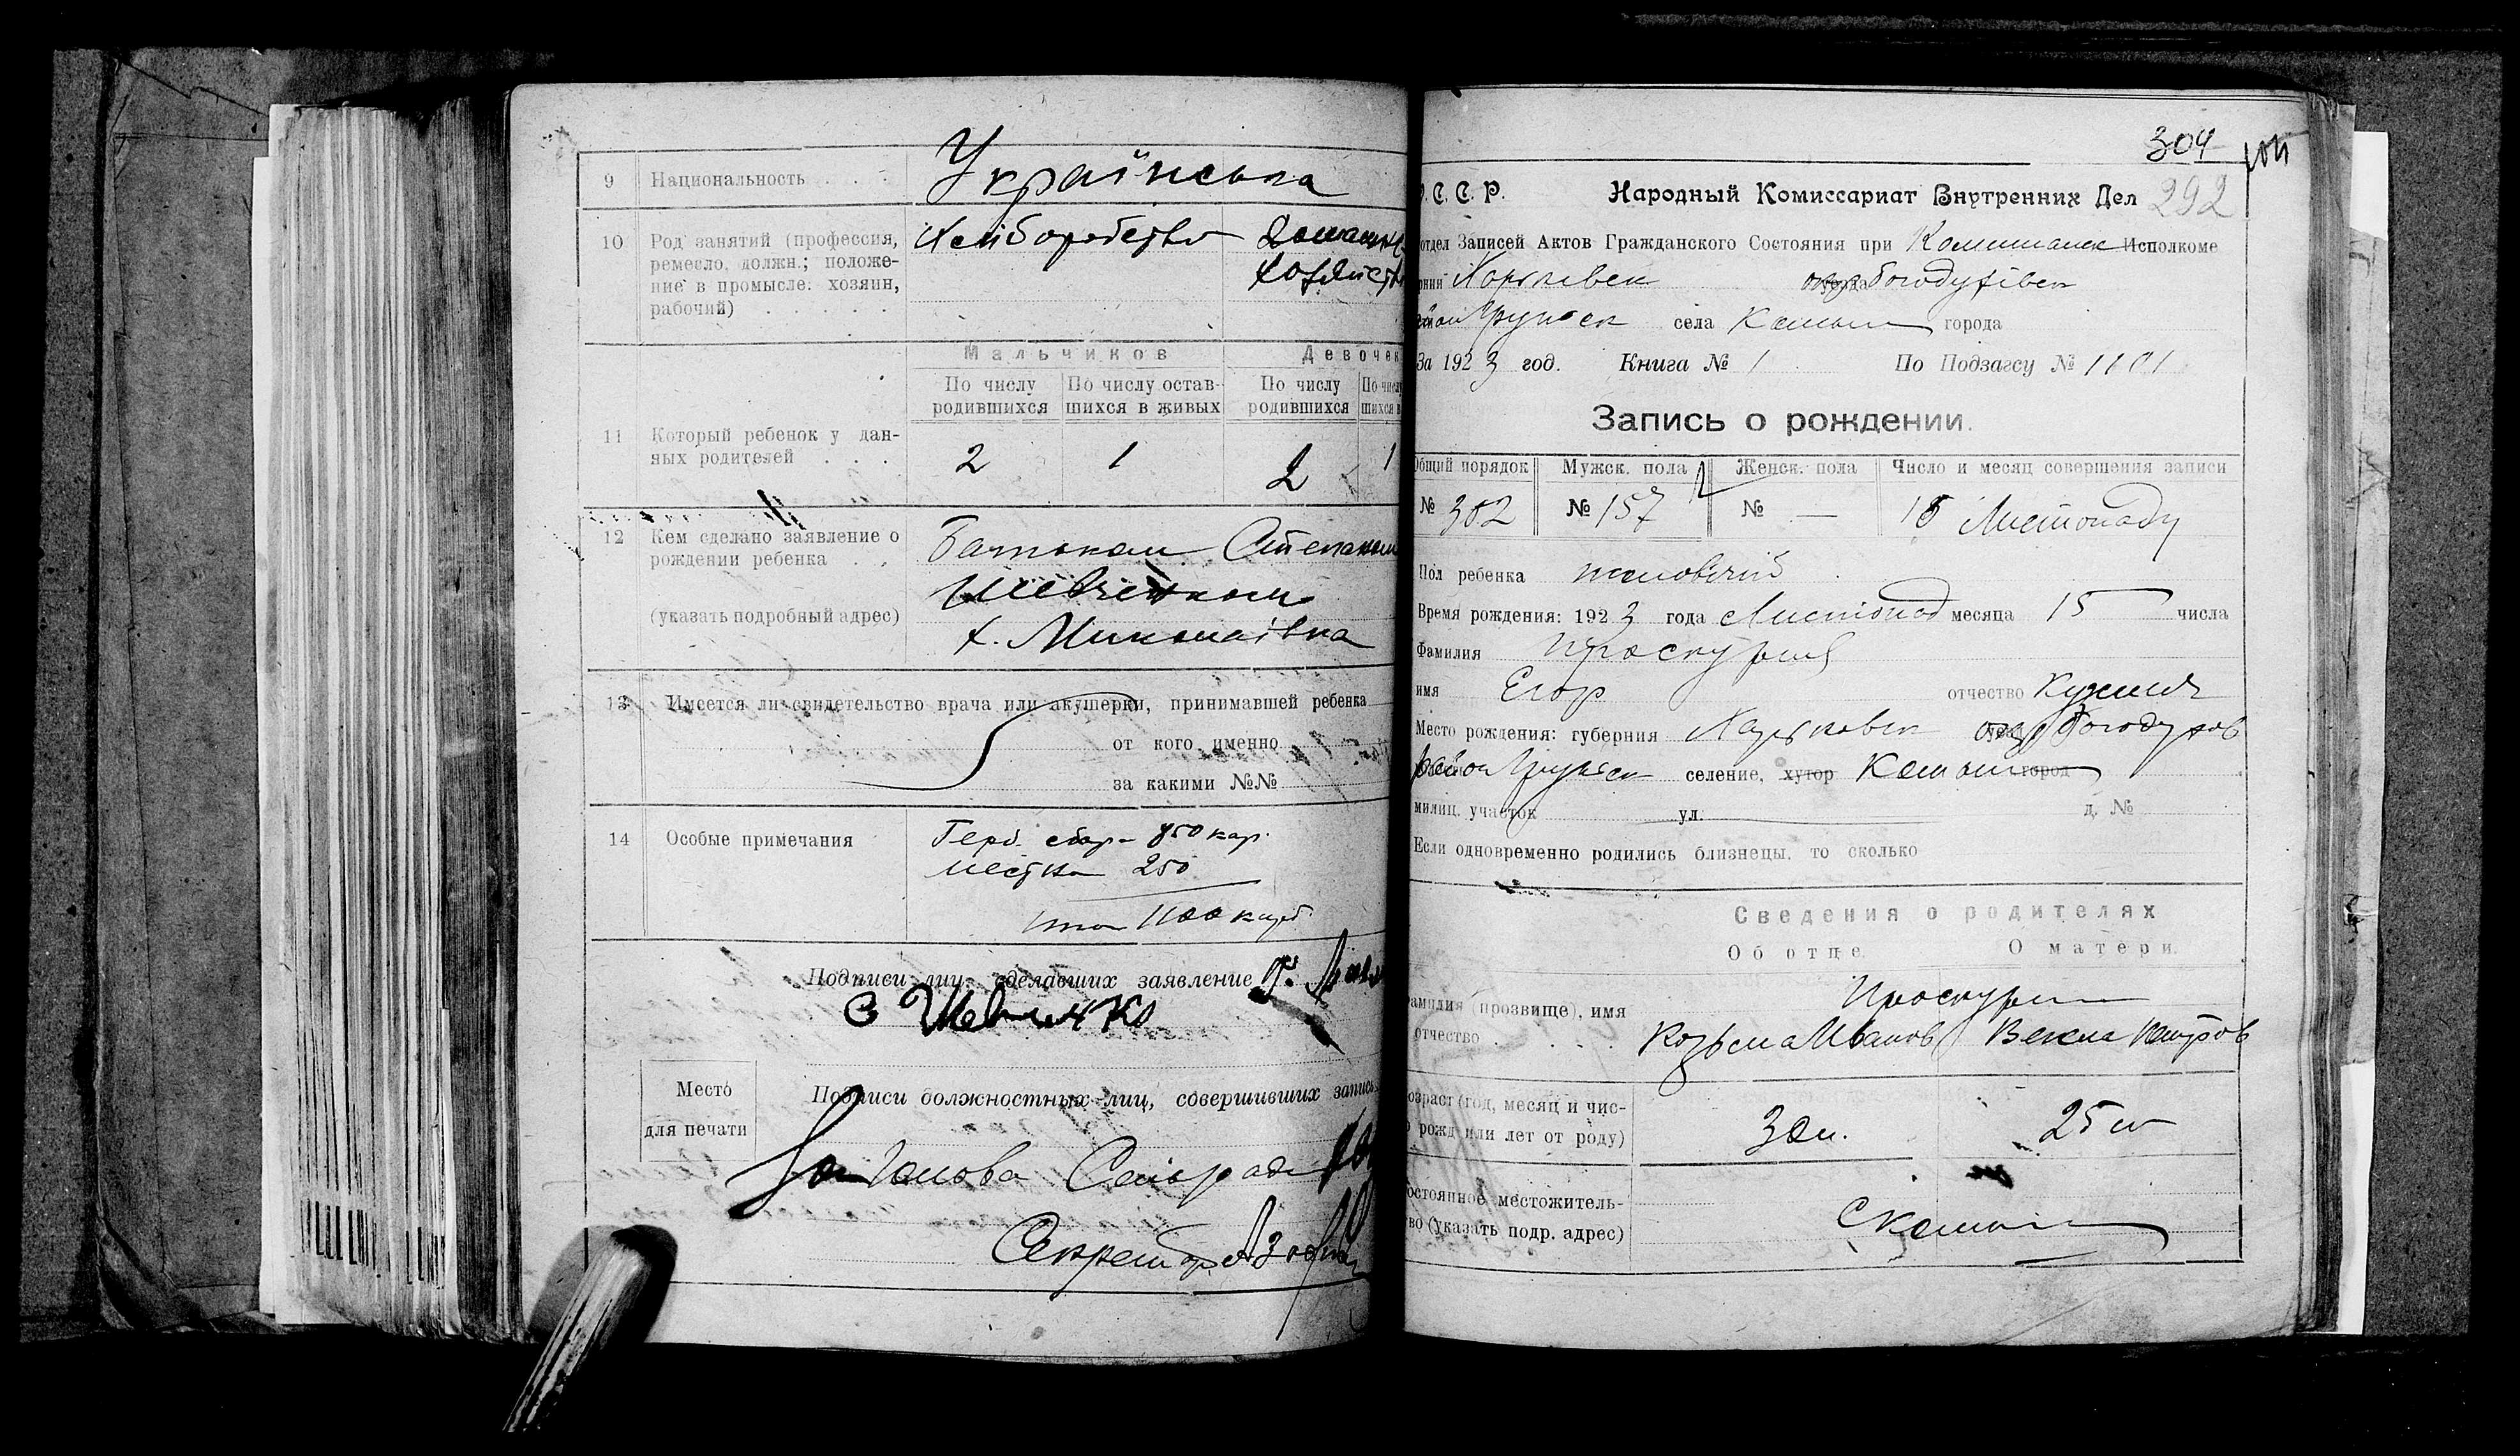 9 Национальность . . . Українська
10 Род занятий (профессия, Хліборобство Домашн
ремесло, должн.; положе- хозяйств
ние в промысле: хозяин,
рабочий) . . . . .
Мальчиков Девочек
По числу По числу остав- По числу По числу
родившихся шихся в живых родившихся шихся в
11 Который ребенок у дан-
ных родителей . . . 2 1 2 1
12 Кем сделано заявление о Батьком Степаном
рождении ребенка . .
Шевченком
(указать подробный адрес)
х. Миколаівка
13 Имеется ли свидетельство врача или акушерки, принимавшей ребенка
от кого именно
за какими №№
14 Особые примечания Герб. сбор- 850 кар.
местн 250
1100 карб.
Подписи лиц, сделавших заявление
С Шевченко
Место
для печати
Подписи должностных лиц, совершивших запись
Голова Сельради
Секретарь
304
292
С. С. Р. Народный Комиссариат Внутренних Дел
отдел Записей Актов Гражданского Состояния при Исполкоме
рнии Харьківск уезда Богодухівск
села города
За 1923 год. Книга № 1 По Подзагсу № 1101
Запись о рождении.
Общий порядок Мужск. пола Женск. пола Число и месяц совершения записи
№ 302 № 157 № — 15 Листопаду
Пол ребенка чоловічій
Время рождения: 1923 года Листопад месяца 15 числа
Фамилия Проскурня
имя Егор отчество Кузмич
Место рождения: губерния Харьковск Богодухов
район селение, хутор город
милиц. участок ул. д. №
Если одновременно родились близнецы, то сколько
Сведения о родителях
Об отце. О матери.
амилия (прозвище), имя
отчество . . . . Козьма Иванов Векла Петров
озраст (год, месяц и чис-
рожд или лет от роду) 30 л. 25
остоянное местожитель-
во (указать подр. адрес)